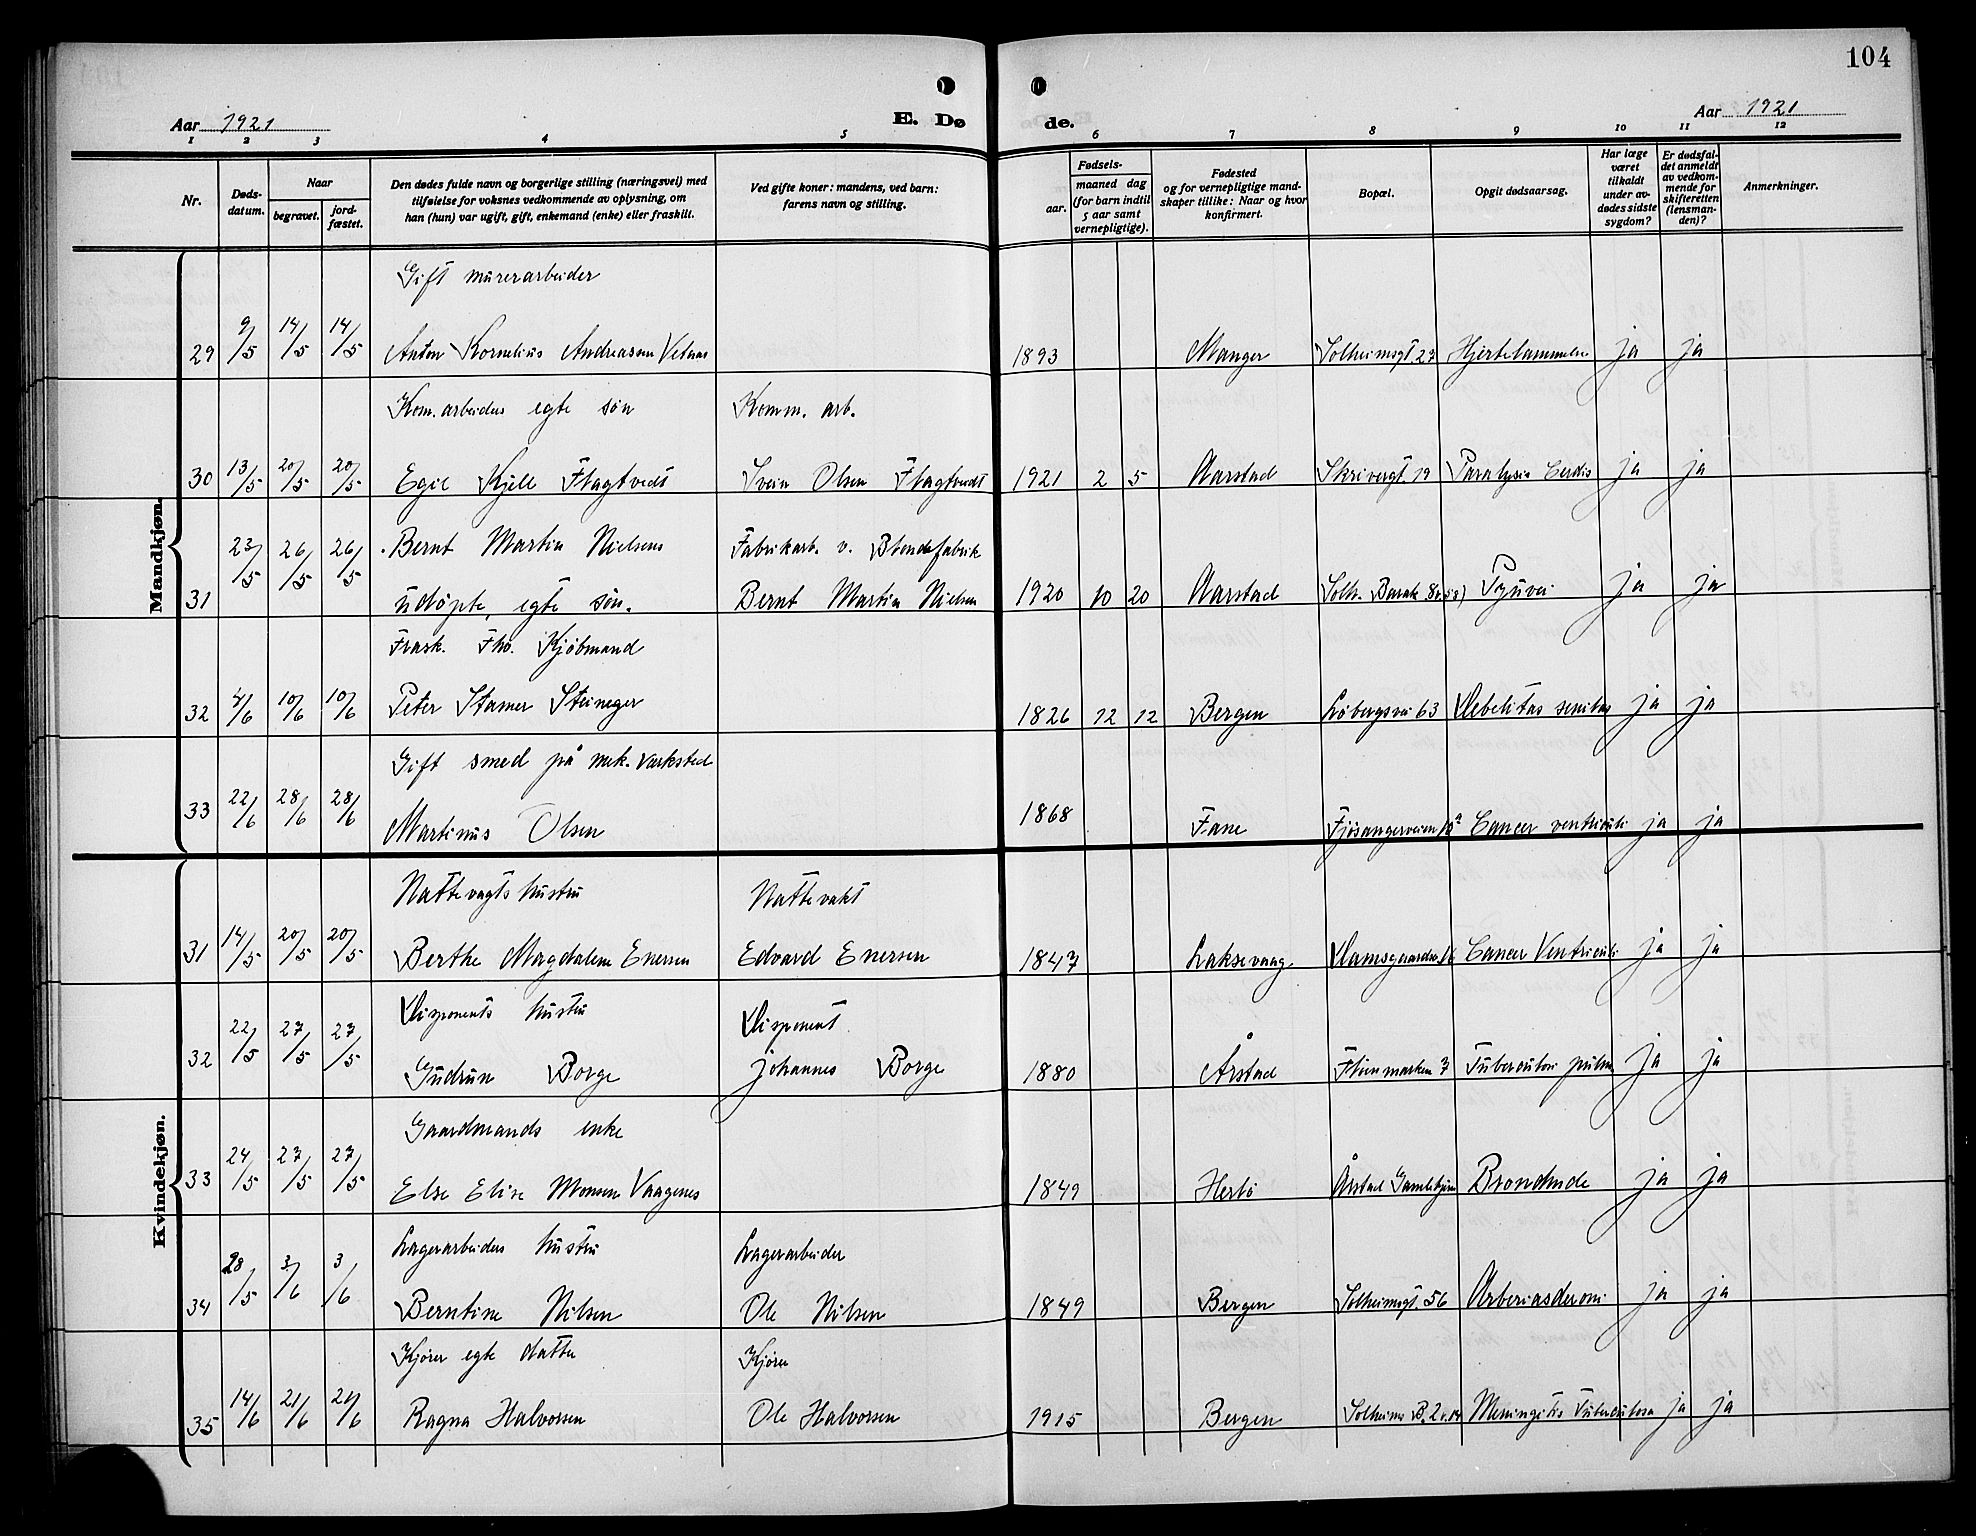 104
Aar 1921
E. Dø
de.
Aar 1921
1 2 3 4 5 6 7 8 9 10 11 12
Nr.
Døds-
datum.
Naar
begravet.
jord-
fæstet.
Den dødes fulde navn og borgerlige stilling (næringsvei) med
tilføielse for voksnes vedkommende av oplysning, om
han (hun) var ugift, gift, enkemand (enke) eller fraskilt.
Ved gifte koner: mandens, ved barn:
farens navn og stilling.
Fødsels-
aar.
maaned dag
(for barn indtil
5 aar samt
vernepligtige).
Fødested
og for vernepligtige mand-
skaper tillike: Naar og hvor
konfirmert.
Bopæl.
Opgit dødsaarsag.
Har læge
været
tilkaldt
under av-
dødes sidste
sygdom?
Er dødsfal-
det anmeldt
av vedkom-
mende for
skifteretten
(lensman-
den)?
Anmerkninger.
Mandkjøn.
Gift murerarbeider
29 9/5 14/5 14/5 Anton Kornelius Andreassen 1893 Manger Solheimsgt. 27 ja ja
Kom. arbeiders egte søn Komm. arb.
30 13/5 20/5 20/5 Egil Kjell Flagtvedt Svein Olsen Flagtvedt 1921 2 5 Aarstad Skrivergt. 19 Paralysis Cerdis ja ja
23/5 26/5 26/5 Bernt Martin Nielsens Fabrikarb. v. Blondefabrik
31 udøpte, egte søn. Bernt Martin Nielsen 1920 10 20 Aarstad Solh. Barak ja ja
Frask. Fhv. Kjøbmand
32 4/6 10/6 10/6 Peter Stamer Steineger 1826 12 12 Bergen Løbergsvei 63 Debelitas senitas ja ja
Gift smed på mek. Værksted
33 22/6 28/6 28/6 Martinus Olsen 1868 Fane Fjøsangerveien Cancer ventriculi ja ja
Kvindekjøn.
Nattevagts hustru Nattevakt
31 14/5 20/5 20/5 Berthe Magdalene Enersen Edvard Enersen 1847 Laksevaag Damsgaardsv. Cancer Ventriculi ja ja
Disponents hustru Disponent
32 22/5 27/5 27/5 Gudrun Borge Johannes Borge 1880 Årstad Fløenmarken 7 Tuberculose pulm ja ja
Gaardmands enke
33 24/5 27/5 27/5 Else Elise Monsen Vaagenes 1849 Herlø Årstad Gamlehjem ja ja
Lagerarbeiders hustru Lagerarbeider
34 28/5 3/6 3/6 Berntine Nilsen Ole Nilsen 1849 Bergen Solheimsgt. 56 ja ja
Kjører egte datter Kjører
35 14/6 21/6 21/6 Ragna Halvorsen Ole Halvorsen 1915 Bergen Solheims B. 2 Meningitis Tuberculosa ja ja